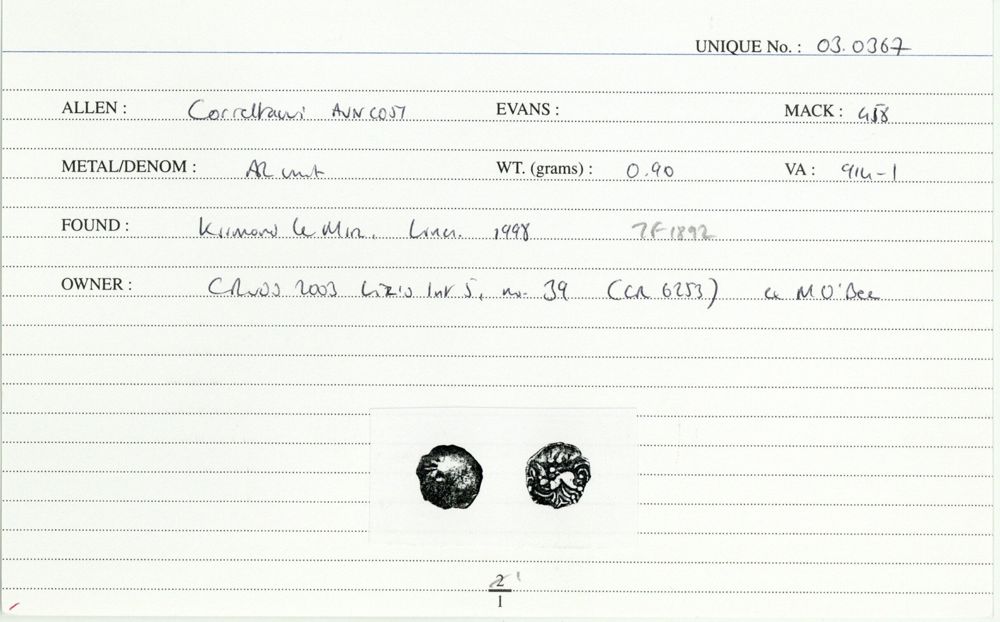 UNIQUE No. : 03.0367
ALLEN : Correltauvi AVN COST EVANS : MACK : 458
METAL/DENOM : AR unit WT. (grams) : 0.90 VA : 914-1
FOUND : Kirmond le Mire. Lincs. 1998 TF1892
OWNER : 2003 Liz's 5, no. 39 (CR 6253) M O'Bee
2 1
1